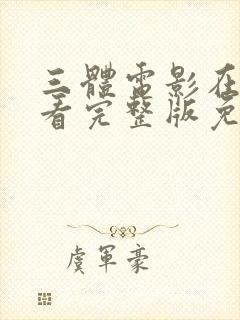 三體電影在
看完整版免
虞軍豪